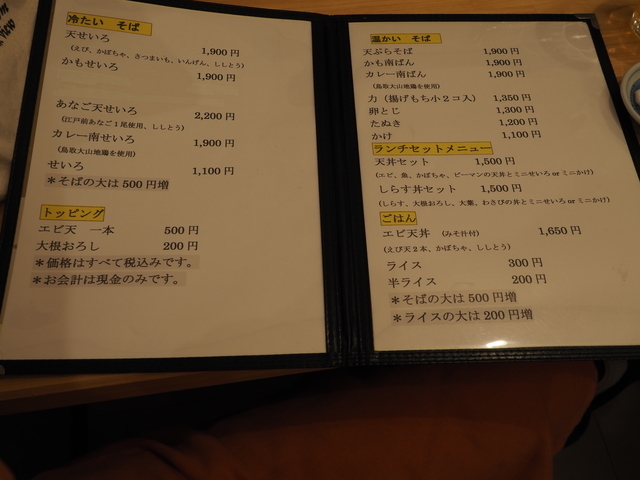 冷たい そば
天せいろ 1,900円
(えび、かぼちゃ、さつまいも、いんげん、ししとう)
かもせいろ 1,900円
あなご天せいろ 2,200円
(江戸前あなご1尾使用、ししとう)
カレー南せいろ 1,900円
(鳥取大山地鶏を使用)
せいろ 1,100円
*そばの大は500円増
トッピング
エビ天 一本 500円
大根おろし 200円
*価格はすべて税込みです。
*お会計は現金のみです。
温かい そば
天ぷらそば 1,900円
かも南ばん 1,900円
カレー南ばん 1,900円
(鳥取大山地鶏を使用)
力(揚げもち小2コ入) 1,350円
卵とじ 1,300円
たぬき 1,200円
かけ 1,100円
ランチセットメニュー
天丼セット 1,500円
(エビ、魚、かぼちゃ、ピーマンの天丼とミニせいろ or ミニかけ)
しらす丼セット 1,500円
(しらす、大根おろし、大葉、わさびの丼とミニせいろ or ミニかけ)
ごはん
エビ天丼 (みそ汁付) 1,650円
(えび天2本、かぼちゃ、ししとう)
ライス 300円
半ライス 200円
*そばの大は500円増
*ライスの大は200円増